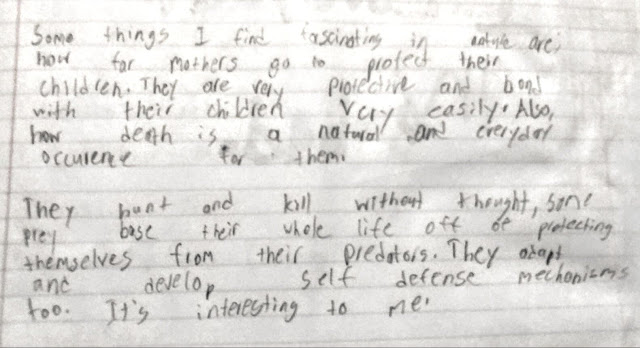 Some things I find fascinating in nature are;
how far mothers go to protect their
children. They are very protective and bond
with their children very easily. Also,
how death is a natural and everyday
occurence for them.
They hunt and kill without thought, some
prey base their whole life off of protecting
themselves from their predators. They adapt
and develop self defense mechonisms
too. It's interesting to me.